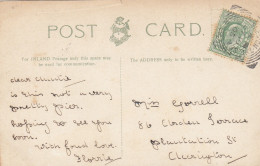 POST CARD.
FOR INLAND Postage only this space may be used for correspondence.
The ADDRESS only to be written here.
dear Auntie
is this not a very
smelly pier,
hoping to see you
soon.
With fond love
Florrie
Miss Gorrell
86 Arden Terrace
Plantation St
Accrington